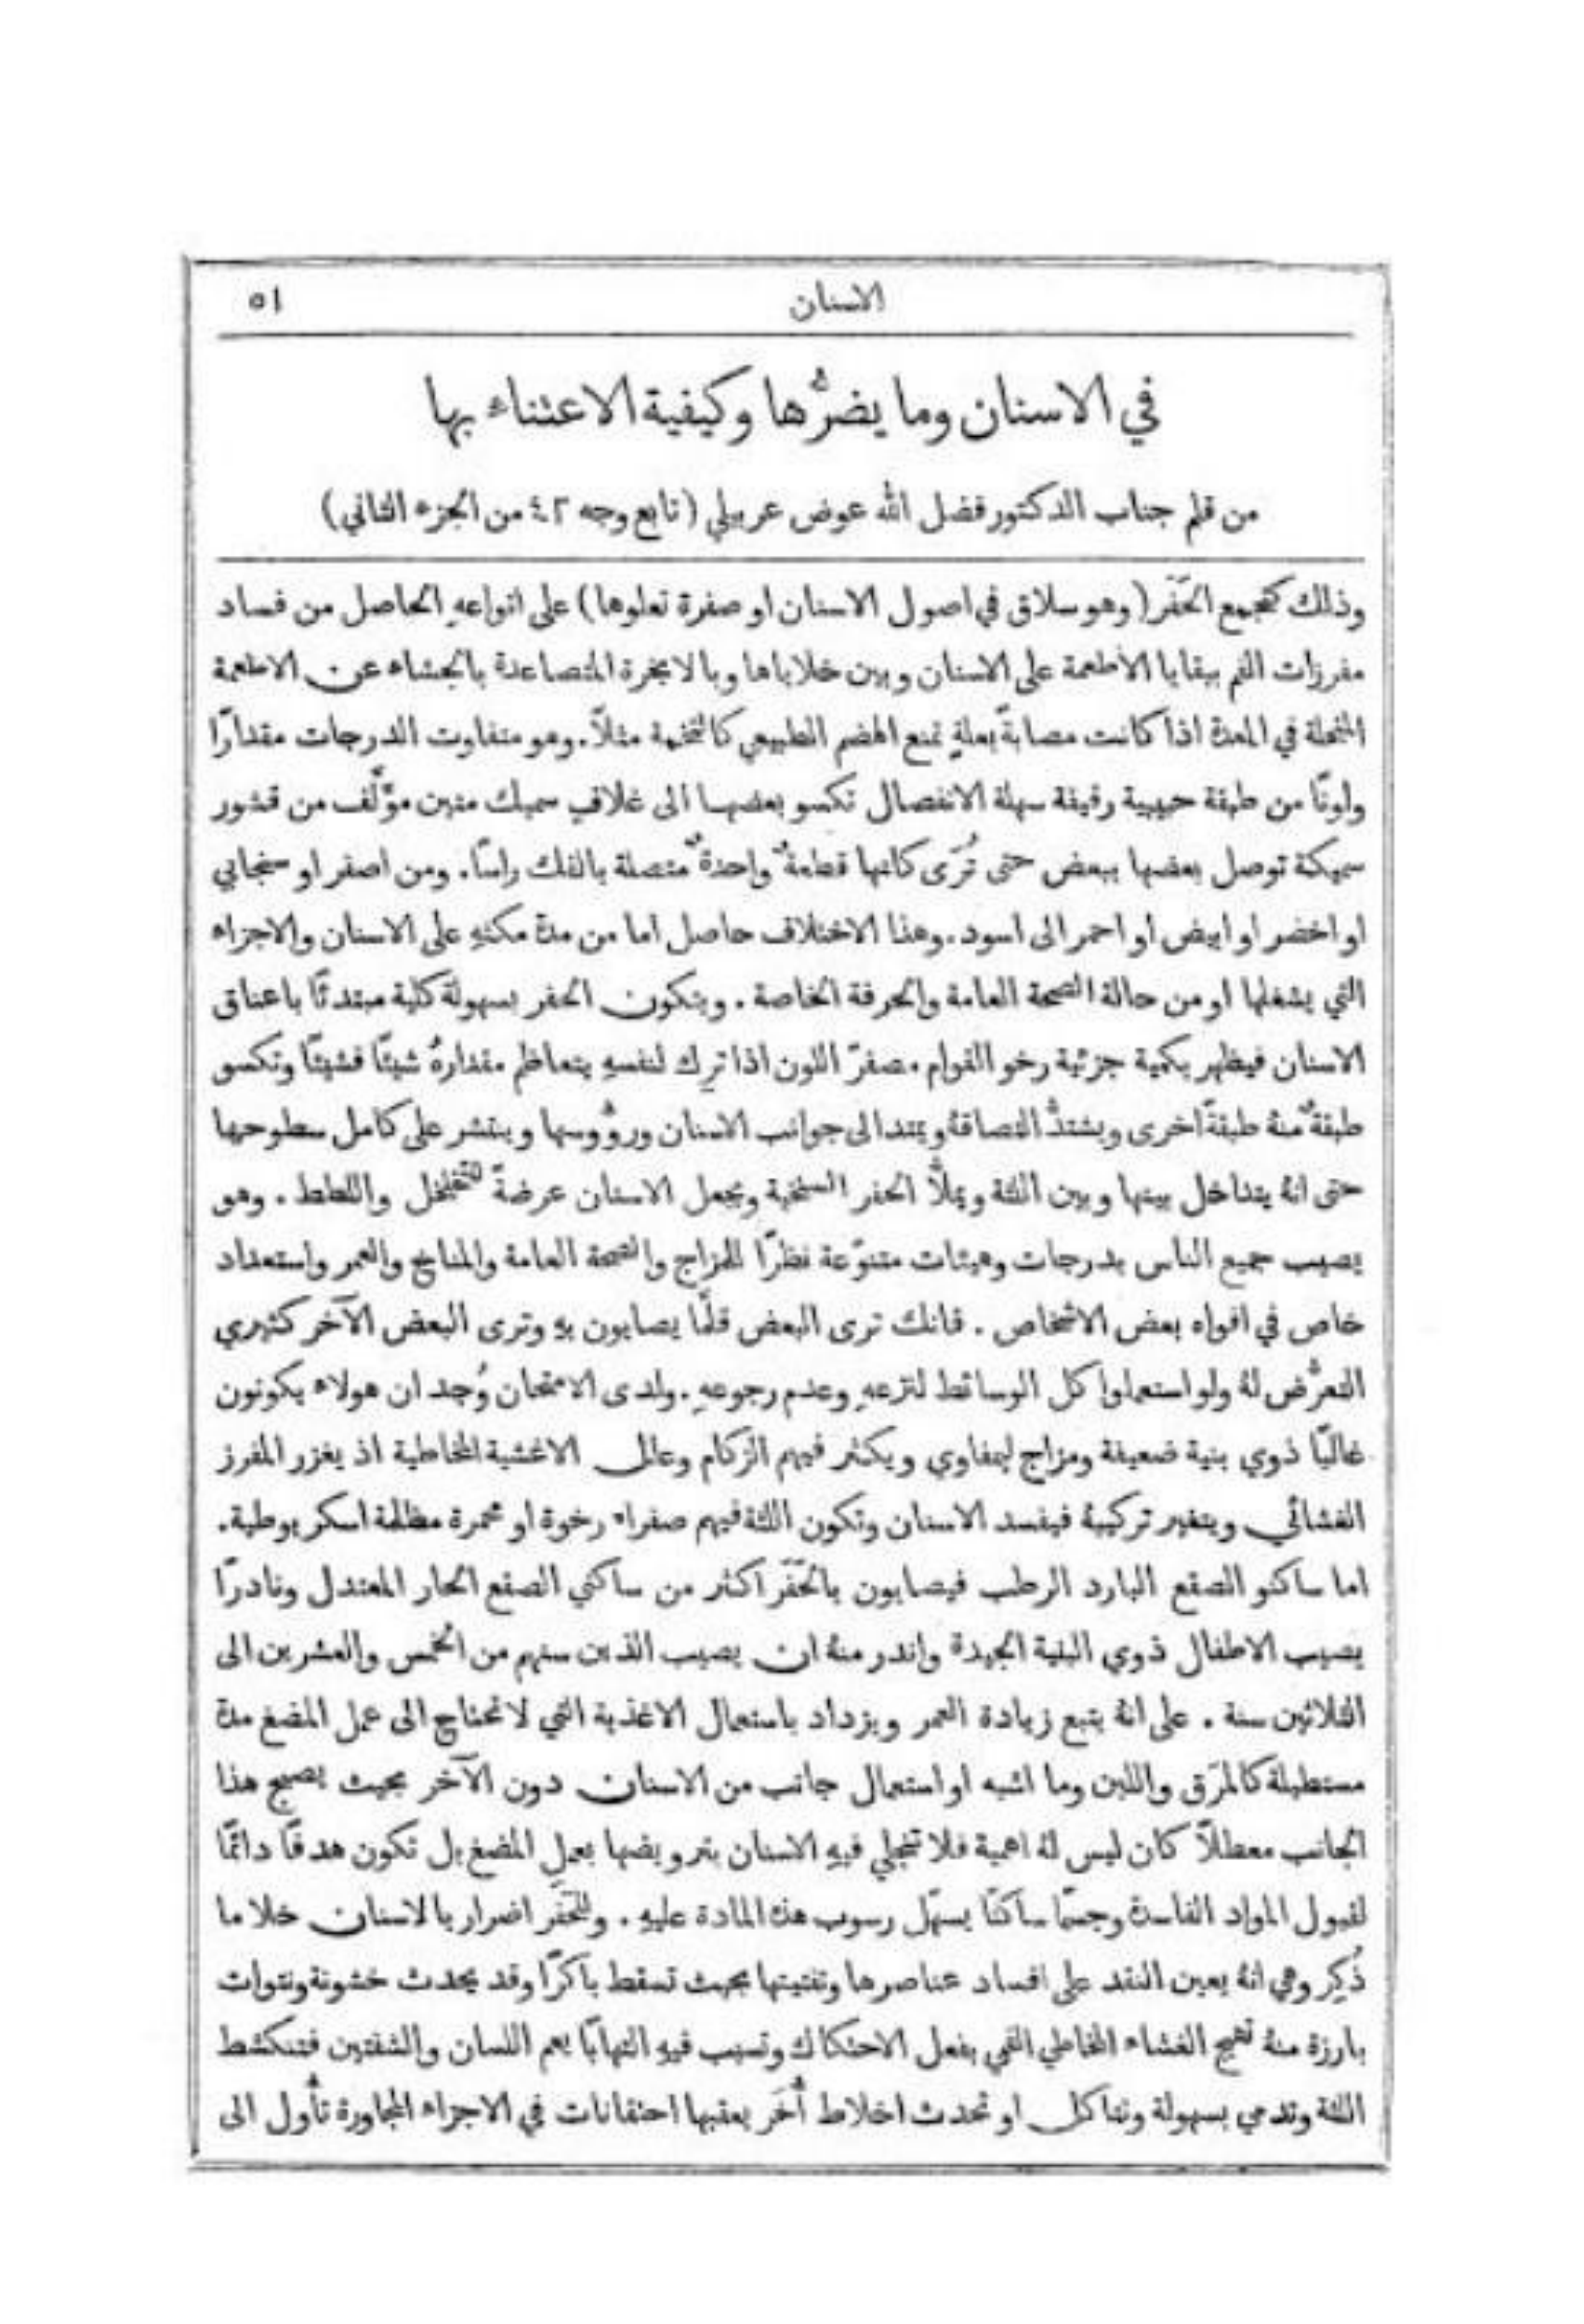 الاسنان ٥١
في الاسنان وما يضرُّها وكيفية الاعتناء بها
من قلم جناب الدكتور فضل الله عوض عربيلي (تابع وجه ٤٢ من الجزء الثاني)
وذلك كتجمع الحَفَر (وهو سلاق في اصول الاسنان او صفرة تعلوها) على انواعهِ الحاصل من فساد
مفرزات الفم ببقايا الأطعمة على الاسنان وبين خلاياها وبالابخرة المتصاعدة بالجشاء عن الاطعمة
المنحلة في المعدة اذا كانت مصابةً بعلةٍ تمنع الهضم الطبيعي كالتخمة مثلاً. وهو متفاوت الدرجات مقدارًا
ولونًا من طبقة حبيبية رقيقة سهلة الانفصال تكسو بعضها الى غلافٍ سميك متين موَّلَّف من قشور
سميكة توصل بعضها ببعض حتى تُرَى كانها قطعةٌ واحدةٌ متصلة بالفك راسًا. ومن اصفر او سنجابي
او اخضر او ابيض او احمر الى اسود. وهذا الاختلاف حاصل اما من مدة مكثهِ على الاسنان والاجزاء
التي يشغلها او من حالة الصحة العامة والحرفة الخاصة. ويتكون الحفر بسهولة كلية مبتدئًا باعناق
الاسنان فيظهر بكمية جزئية رخو القوام مصفرّ اللون اذا ترك لنفسهِ يتعاظم مقدارهُ شيئًا فشيئًا وتكسو
طبقةٌ منهُ طبقةً اخرى ويشتدُّ التصاقهُ ويمتد الى جوانب الاسنان وروُّوسها وينتشر على كامل سطوحها
حتى انهُ يتداخل بينها وبين اللثة ويملأُ الحفر السنخية ويجعل الاسنان عرضةً للتخلخل واللطط. وهو
يصيب جميع الناس بدرجات وهيئات متنوّعة نظرًا للمزاج والصحة العامة والمناخ والعمر واستعداد
خاص في افواه بعض الاشخاص. فانك ترى البعض قلَّما يصابون بهِ وترى البعض الآخر كثيري
التعرُّض لهُ ولو استعملوا كل الوسائط لنزعهِ وعدم رجوعهِ. ولدى الامتحان وُجد ان هولاء يكونون
غالبًا ذوي بنية ضعيفة ومزاج ليمفاوي ويكثر فيهم الزكام وعلل الاغشية المخاطية اذ يغزر المفرز
الغشائي ويتغير تركيبهُ فيفسد الاسنان وتكون اللثة فيهم صفراء رخوة او محمرة مظلمة اسكربوطية.
اما ساكنو الصقع البارد الرطب فيصابون بالحَفَر اكثر من ساكني الصقع الحار المعتدل ونادرًا
يصيب الاطفال ذوي البنية الجيدة واندر منهُ ان يصيب الذين سنهم من الخمس والعشرين الى
الثلاثين سنة. على انهُ يتبع زيادة العمر ويزداد باستعمال الاغذية التي لا تحتاج الى عمل المضغ مدة
مستطيلة كالمرَق واللبن وما اشبه او استعمال جانب من الاسنان دون الآخر بحيث يصبح هذا
الجانب معطلاً كان ليس لهُ اهمية فلا تنجلي فيهِ الاسنان بترويضها بعمل المضغ بل تكون هدفًا دائمًا
لقبول المواد الفاسدة وجسمًا ساكنًا يسهّل رسوب هذه المادة عليهِ. وللحَفَر اضرار بالاسنان خلا ما
ذُكِر وهي انهُ يعين النقد على افساد عناصرها وتفتيتها بحيث تسقط باكرًا وقد يحدث خشونة ونتوات
بارزة منهُ تهيج الغشاء المخاطي الفمي بفعل الاحتكاك وتسبب فيهِ التهابًا يعم اللسان والشفتين فتنكشط
اللثة وتدمي بسهولة وتتاكل او تحدث اخلاط أُخَر يعقبها احتقانات في الاجزاء المجاورة تأُول الى